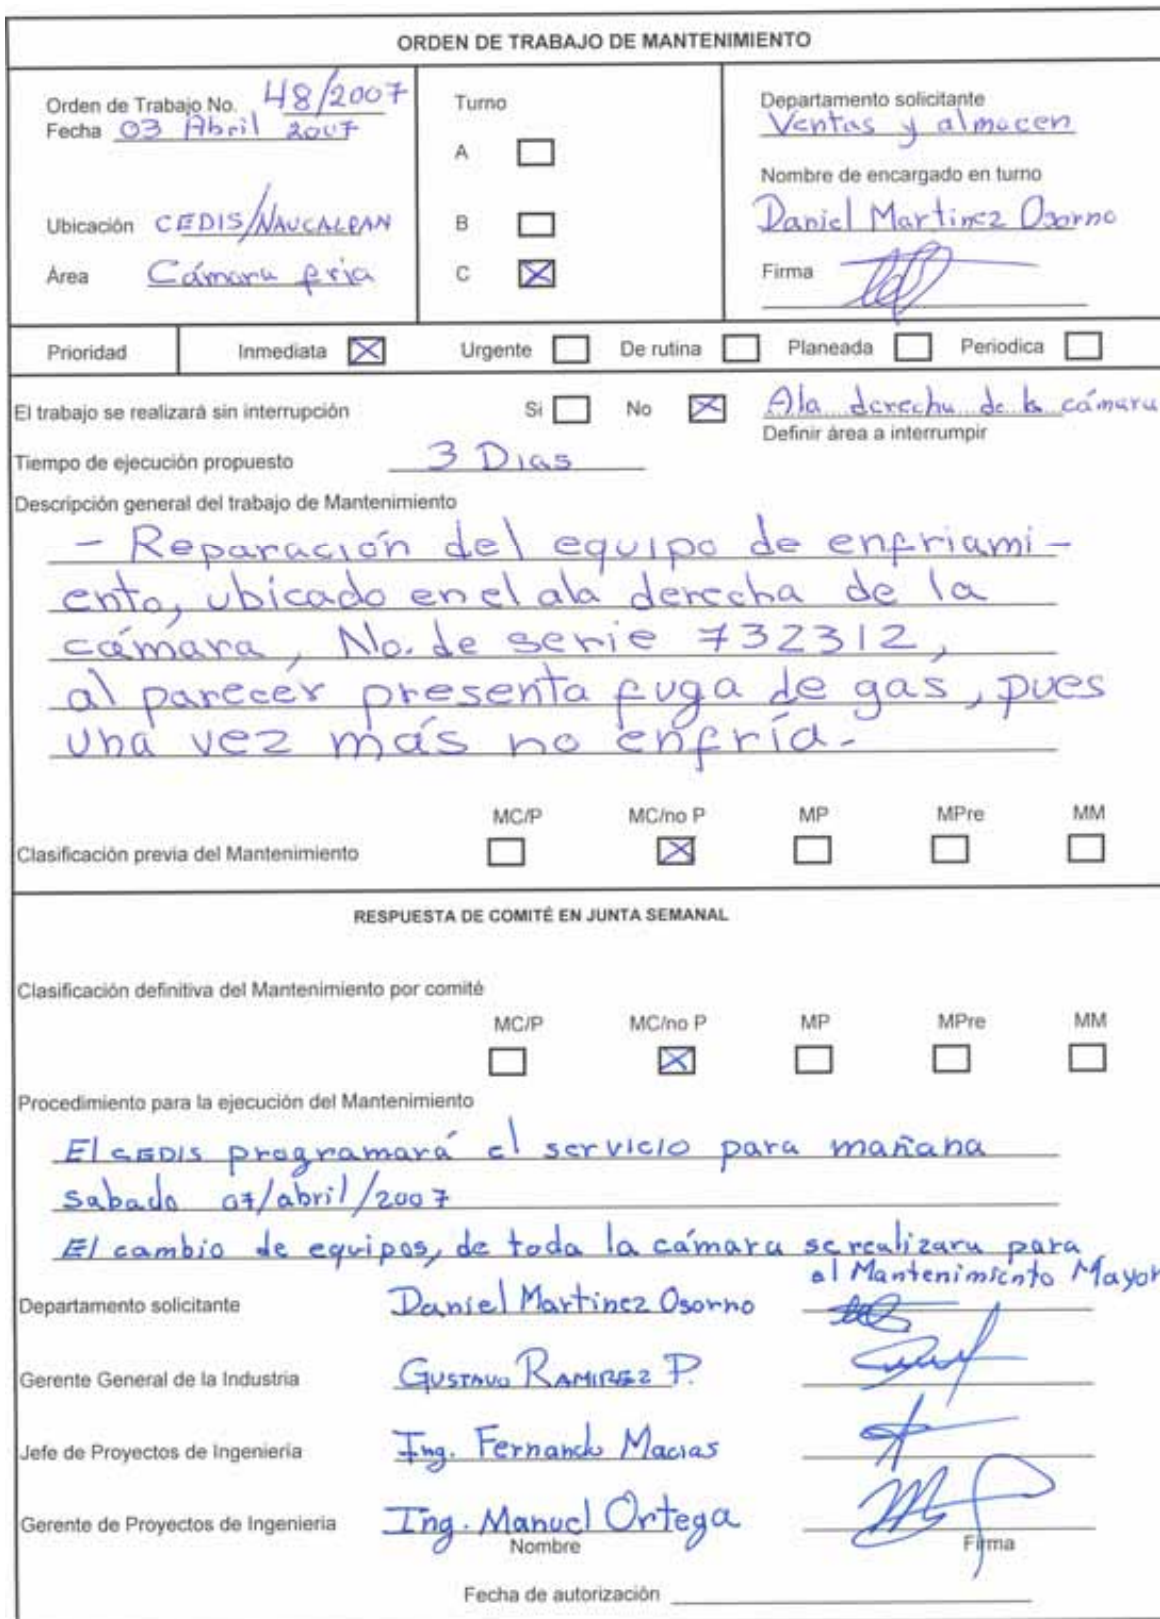 ORDEN DE TRABAJO DE MANTENIMIENTO
Orden de Trabajo No. 48/2007
Fecha 03 Abril 2007
Ubicación CEDIS/NAUCALPAN
Área Cámara fria
Turno
A
B
C
Departamento solicitante
Ventas y almacen
Nombre de encargado en turno
Daniel Martinez Osorno
Firma
Prioridad Inmediata Urgente De rutina Planeada Periodica
El trabajo se realizará sin interrupción Si No Ala derecha de la cámara
Definir área a interrumpir
Tiempo de ejecución propuesto 3 Dias
Descripción general del trabajo de Mantenimiento
- Reparación del equipo de enfriami-
ento, ubicado en el ala derecha de la
cámara, No. de serie 732312,
al parecer presenta fuga de gas, pues
una vez más no enfría.
MC/P MC/no P MP MPre MM
Clasificación previa del Mantenimiento
RESPUESTA DE COMITÉ EN JUNTA SEMANAL
Clasificación definitiva del Mantenimiento por comité
MC/P MC/no P MP MPre MM
Procedimiento para la ejecución del Mantenimiento
El CEDIS programará el servicio para mañana
sabado 07/abril/2007
El cambio de equipos, de toda la cámara se realizara para
el Mantenimiento Mayor
Departamento solicitante Daniel Martinez Osorno
Gerente General de la Industria GUSTAVO RAMIREZ P.
Jefe de Proyectos de Ingenieria Ing. Fernando Macias
Gerente de Proyectos de Ingenieria Ing. Manuel Ortega
Nombre Firma
Fecha de autorización